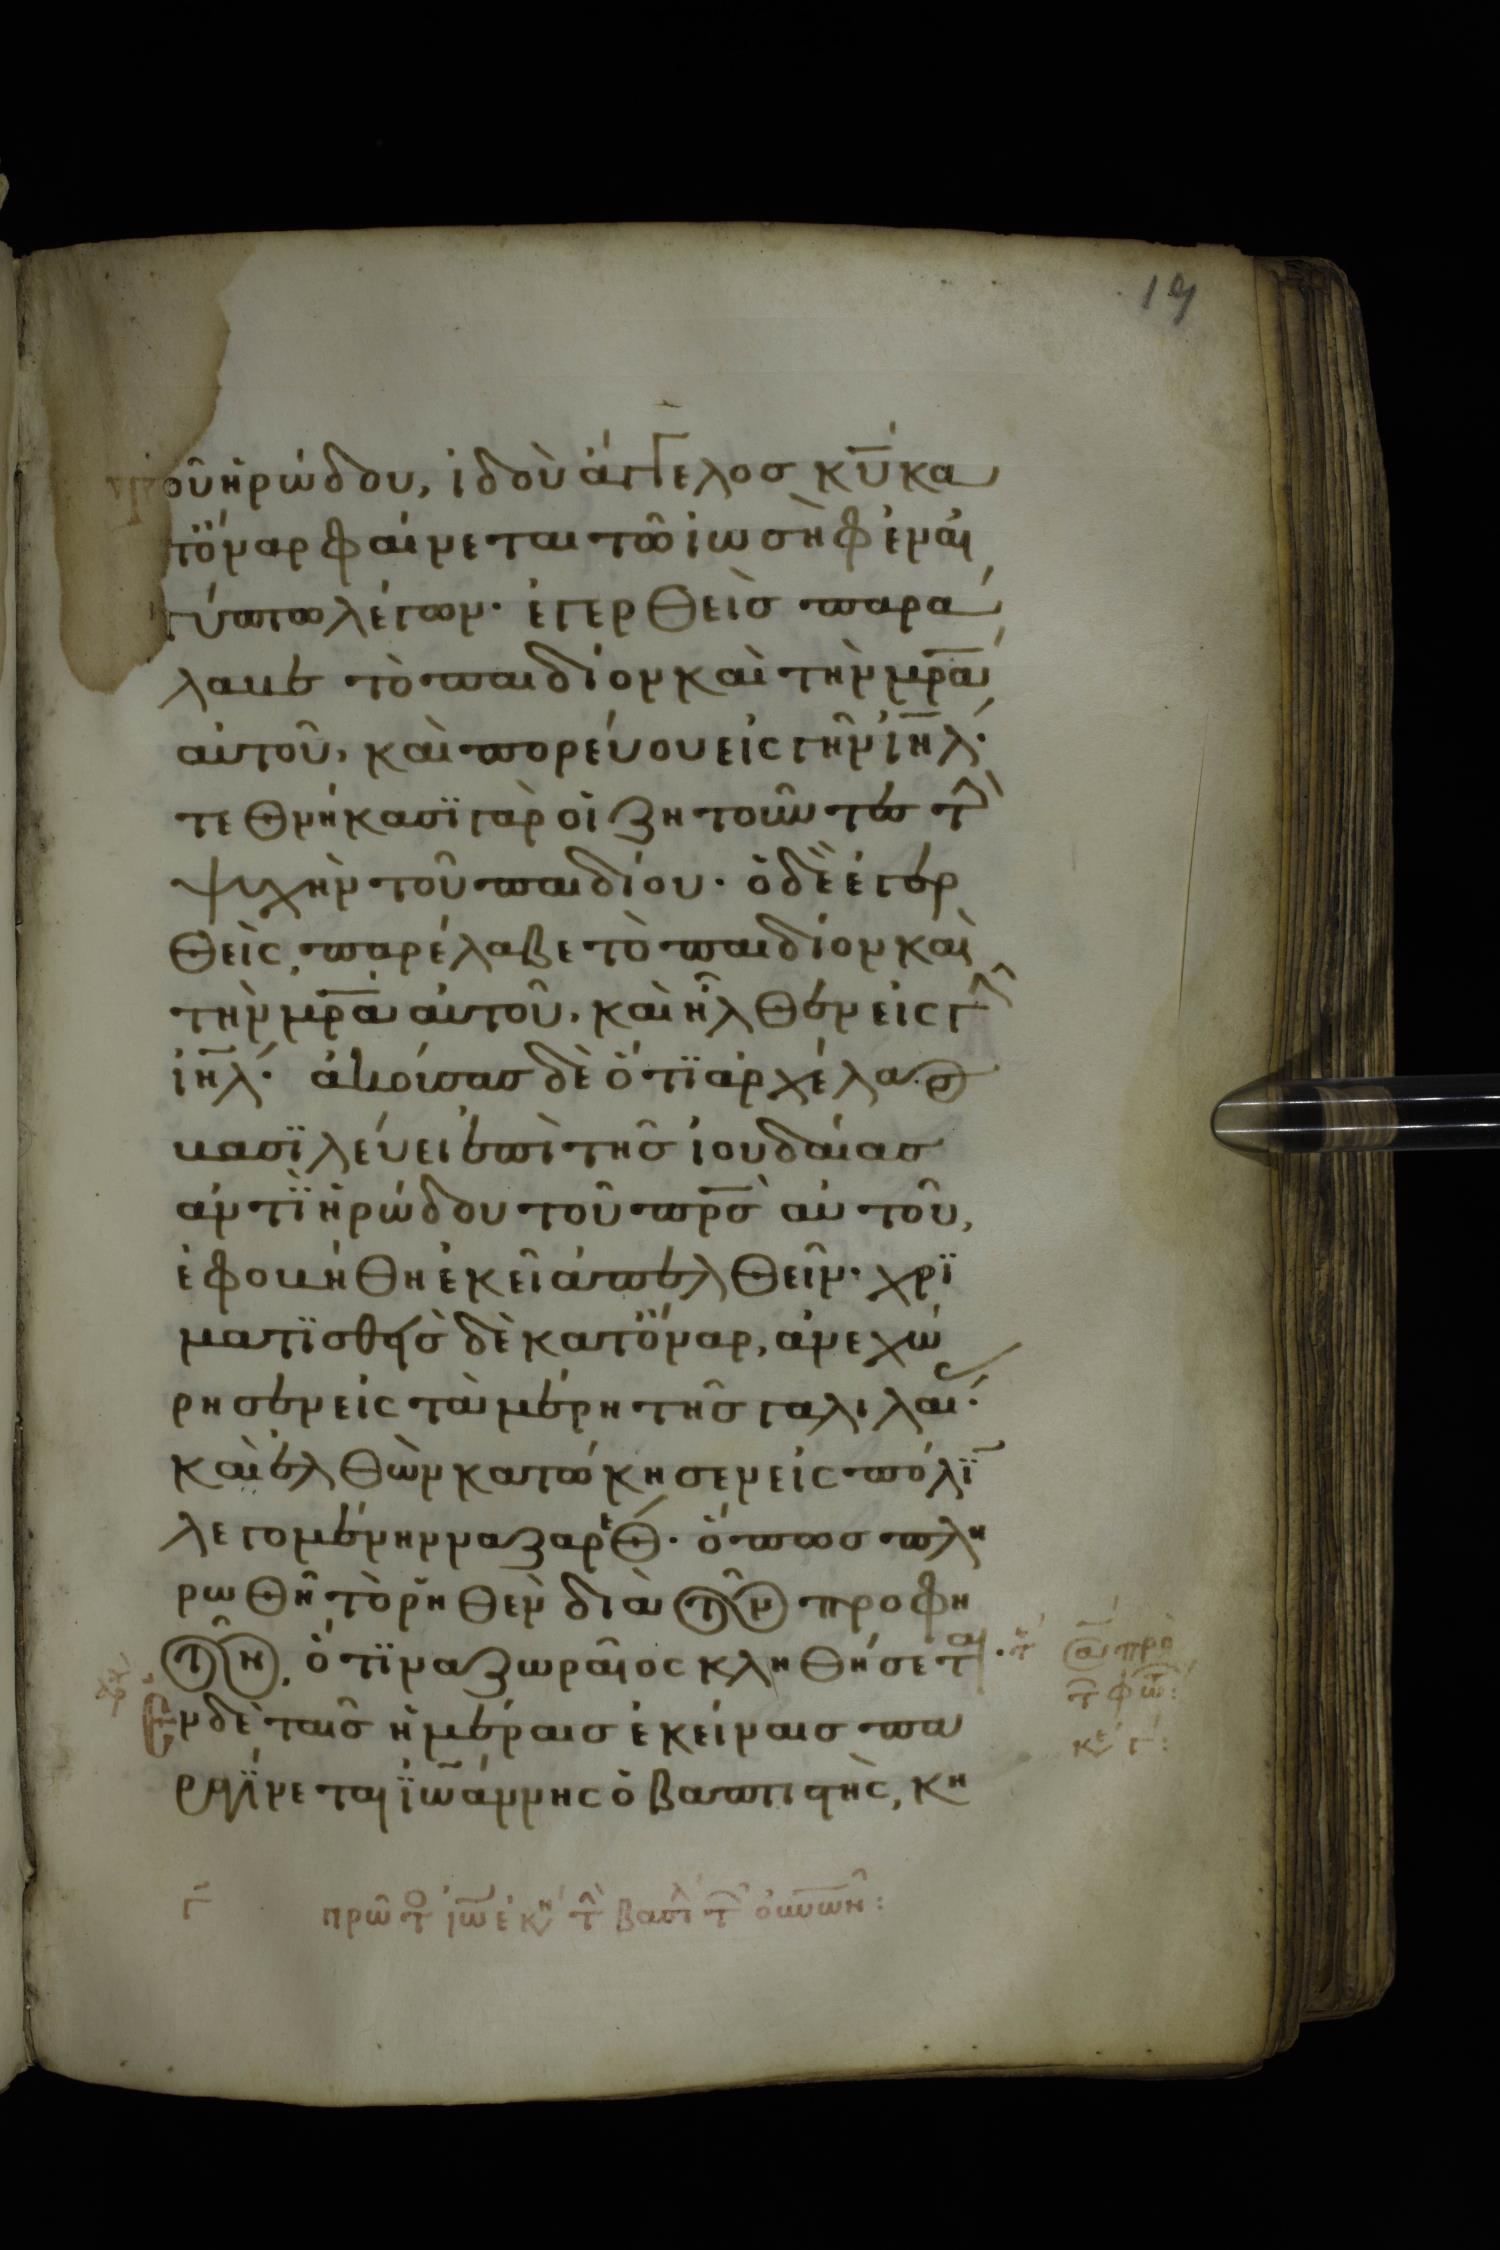 19
τοῦ ἡρώδου, ἰδοὺ ἄγγελος κ̅υ̅ κα
τ' ὄναρ φαίνεται τῶ ἰωσὴφ ἐν αἰ
γύπτω λέγων· ἐγερθεὶς παρά
λαβε τὸ παιδίον καὶ τὴν μ̅ρ̅α̅
αὐτοῦ, καὶ πορεύου εἰς γῆν ἰ̅η̅λ̅·
τεθνήκασϊ γὰρ οἱ ζητοῦντες τὴν
ψυχὴν τοῦ παιδίου· ὁ δὲ ἐγερ
θεὶς, παρέλαβε τὸ παιδίον καὶ
τὴν μ̅ρ̅α̅ αὐτοῦ, καὶ ἦλθεν εἰς γῆν
ἰ̅η̅λ̅· ἀκούσας δὲ ὅτϊ ἀρχέλαος
βασϊλεύει ἐπὶ τῆς ἰουδαίας
ἀντϊ ἡρώδου τοῦ π̅ρ̅ς̅ αὐτοῦ,
ἐφοβήθη ἐκεῖ ἀπελθεῖν· χρϊ
ματϊσθεὶς δὲ κατ' ὄναρ, ἀνεχώ
ρησεν εἰς τὰ μέρη τῆς γαλιλαίας·
καὶ ἐλθὼν κατώκησεν εἰς πόλϊν
λεγομένην ναζαρέθ· ὅπως πλη
ρωθῆ τὸ ῥηθὲν διὰ τῶν προφη
τῶν, ὅτϊ ναζωραῖος κληθήσεται·
Ἐν δὲ ταῖς ἡμέραις ἐκείναις πα
ραγίνεται ἰωάννης ὁ βαπτιστὴς, κη